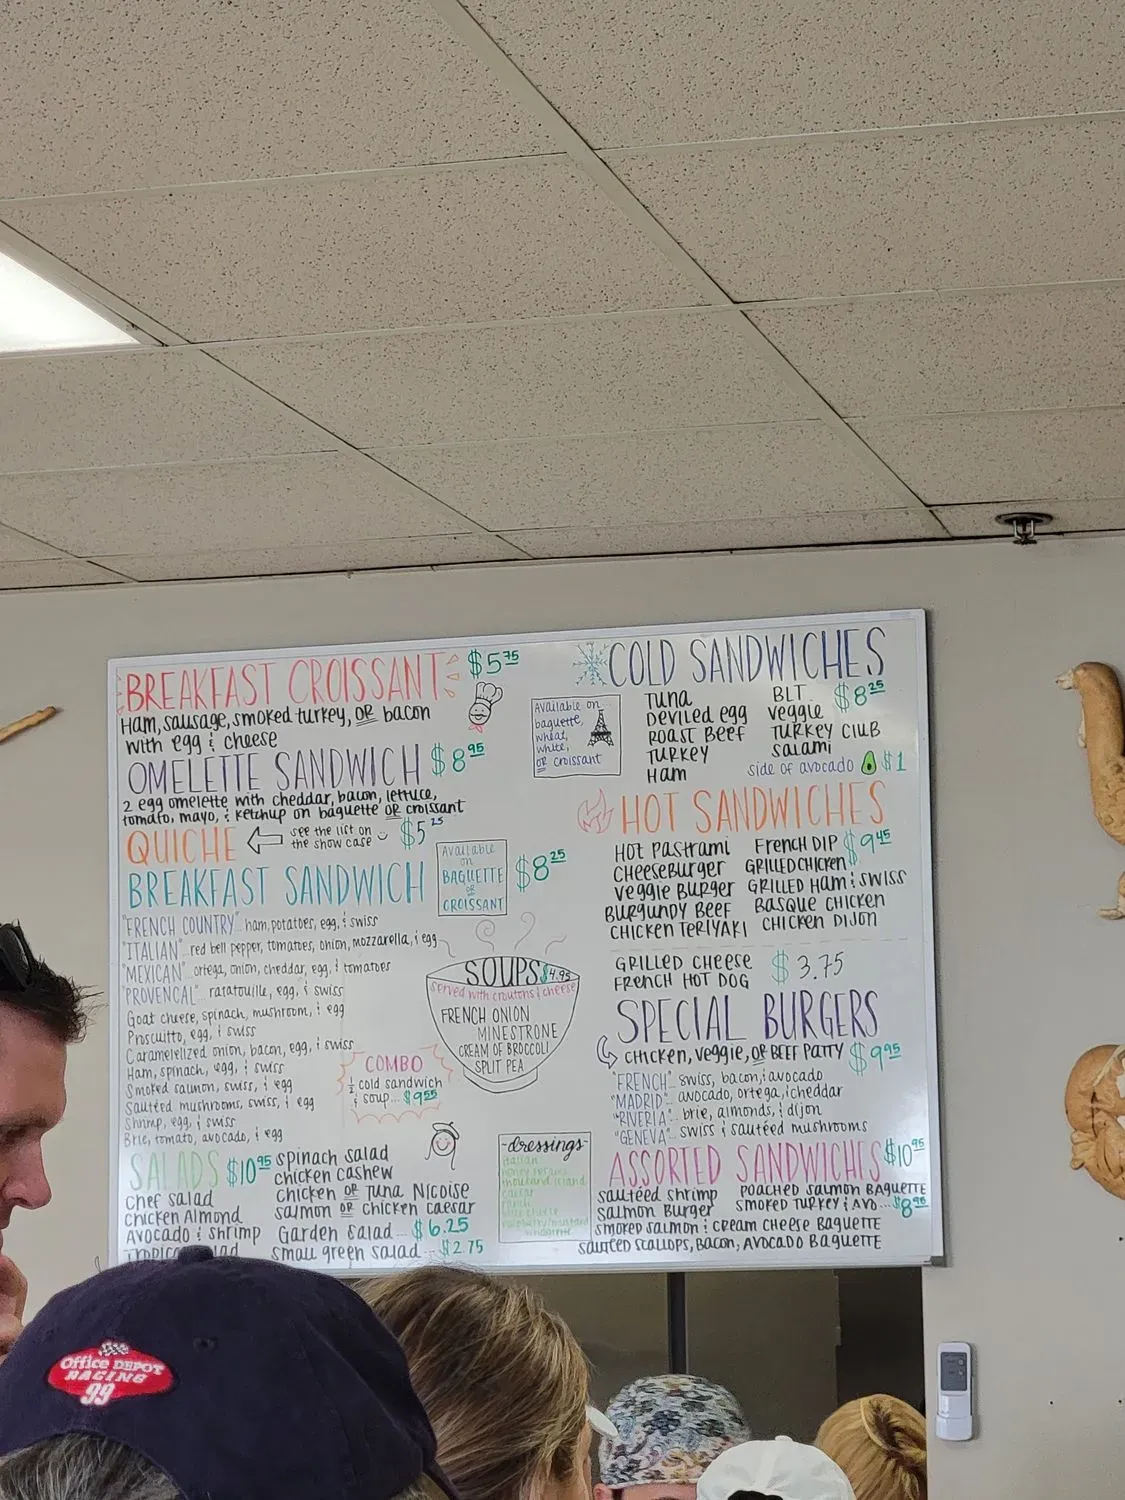 BREAKFAST CROISSANT $5 75
Ham, sausage, smoked turkey, OR bacon
with egg & cheese
OMELETTE SANDWICH $8 95
2 egg omelette with cheddar, bacon, lettuce,
tomato, mayo, & ketchup on baguette OR croissant
QUICHE
see the list on
the show case
$5 25
BREAKFAST SANDWICH
Available
on
BAGUETTE
OR
CROISSANT
$8 25
"FRENCH COUNTRY" ham, potatoes, egg, & swiss
"ITALIAN" red bell pepper, tomatoes, onion, mozzarella, & egg
"MEXICAN" ortega, onion, cheddar, egg, & tomatoes
"PROVENCAL" ratatouille, egg, & swiss
Goat cheese, spinach, mushroom, & egg
Proscuitto, egg, & swiss
Caramelelized onion, bacon, egg, & swiss
Ham, spinach, egg, & swiss
Smoked salmon, swiss, & egg
Sautéed mushrooms, swiss, & egg
Shrimp, egg, & swiss
Brie, tomato, avocado, & egg
COMBO
½ cold sandwich
& soup... $9.55
SOUPS $4.95
served with croutons & cheese
FRENCH ONION
MINESTRONE
CREAM OF BROCCOLI
SPLIT PEA
SALADS $10 95
Chef salad
Chicken Almond
Avocado & shrimp
spinach salad
chicken cashew
Chicken OR Tuna Nicoise
salmon OR chicken caesar
Garden salad... $6.25
small green salad... $2.75
-dressings-
italian
thousand island
caesar
ranch
COLD SANDWICHES
Available on...
baguette,
wheat,
white,
OR croissant
Tuna
Deviled egg
Roast Beef
Turkey
Ham
BLT
veggie
Turkey Club
salami
$8 25
side of avocado $1
HOT SANDWICHES
Hot Pastrami
Cheeseburger
Veggie Burger
Burgundy Beef
Chicken Teriyaki
French Dip
Grilled chicken
Grilled Ham & swiss
Basque Chicken
Chicken Dijon
$9 45
Grilled Cheese
French Hot Dog
$3.75
SPECIAL BURGERS
Chicken, veggie, OR Beef Patty $9 95
"FRENCH".. swiss, bacon, & avocado
"MADRID".. avocado, ortega, & cheddar
"RIVERIA".. brie, almonds, & dijon
"GENEVA".. swiss & sautéed mushrooms
ASSORTED SANDWICHES $10 95
sautéed shrimp
salmon Burger
Poached salmon Baguette
smoked Turkey & Avo... $8 95
smoked salmon & cream cheese Baguette
sautéed scallops, Bacon, Avocado Baguette
Office DEPOT
RACING
99